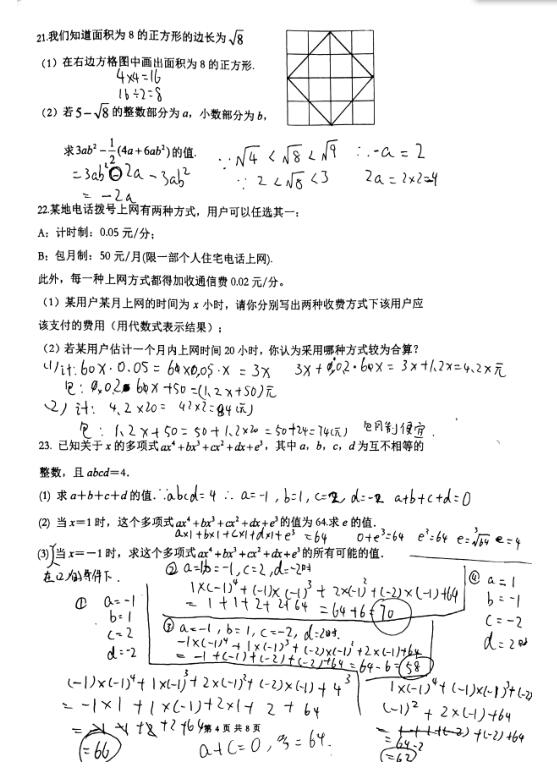 21.我们知道面积为 8 的正方形的边长为 √8
(1) 在右边方格图中画出面积为 8 的正方形.
4×4=16
16÷2=8
(2) 若 5-√8 的整数部分为 a，小数部分为 b，
求 3ab² - 1/2(4a+6ab²) 的值.
∵ √4 < √8 < √9 ∴ -a = 2
= 3ab² - 2a - 3ab²
∵ 2 < √8 < 3 2a = 2×2=4
= -2a
22.某地电话拨号上网有两种方式，用户可以任选其一：
A：计时制：0.05 元/分；
B：包月制：50 元/月(限一部个人住宅电话上网).
此外，每一种上网方式都得加收通信费 0.02 元/分。
(1) 某用户某月上网的时间为 x 小时，请你分别写出两种收费方式下该用户应
该支付的费用（用代数式表示结果）；
(2) 若某用户估计一个月内上网时间 20 小时，你认为采用哪种方式较为合算？
(1) 计: 60x · 0.05 = 60×0.05·x = 3x 3x + 0.02·60x = 3x+1.2x=4.2x元
包: 0.02·60x+50=(1.2x+50)元
(2) 计: 4.2×20= 42×2=84(元)
包: 1.2x+50=50+1.2×20=50+24=74(元) 包月制便宜
23. 已知关于 x 的多项式 ax⁴+bx³+cx²+dx+e³，其中 a，b，c，d 为互不相等的
整数，且 abcd=4．
(1) 求 a+b+c+d 的值. ∵abcd=4 ∴ a=-1, b=1, c=2, d=-2 a+b+c+d=0
(2) 当 x=1 时，这个多项式 ax⁴+bx³+cx²+dx+e³ 的值为 64.求 e 的值.
a×1+b×1+c×1+d×1+e³=64 0+e³=64 e³=64 e=∛64 e=4
(3) 当 x=-1 时，求这个多项式 ax⁴+bx³+cx²+dx+e³ 的所有可能的值.
在(2)的条件下.
① a=-1
b=1
c=2
d=-2
② a=1 b=-1, c=2, d=-2时
1×(-1)⁴+(-1)×(-1)³+2×(-1)²+(-2)×(-1)+64
=1+1+2+2+64 =64+6=70
③ a=-1, b=1, c=-2, d=2时.
-1×(-1)⁴+1×(-1)³+(-2)×(-1)²+2×(-1)+64
=-1+(-1)+(-2)+(-2)+64=64-6=58
④ a=1
b=-1
c=-2
d=2时
(-1)×(-1)⁴+1×(-1)³+2×(-1)²+(-2)×(-1)+4³
=-1×1+1×(-1)+2×1+2+64
=-1-1+2+2+64
=66
1×(-1)⁴+(-1)×(-1)³+(-2)
(-1)²+2×(-1)+64
+(-2)+64
=64-2
=62
第 4 页 共 8 页
a+c=0, =64.